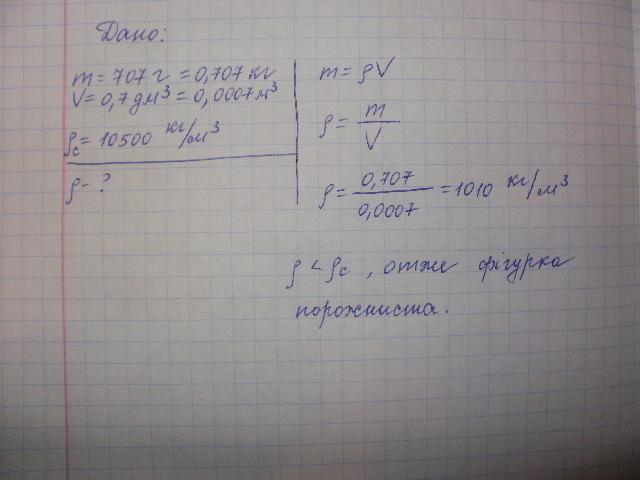 Дано:
m = 707 г = 0,707 кг
V = 0,7 дм³ = 0,0007 м³
ρc = 10500 кг/м³
ρ - ?
m = ρV
ρ = m / V
ρ = 0,707 / 0,0007 = 1010 кг/м³
ρ < ρc , отже фігурка
порожниста.